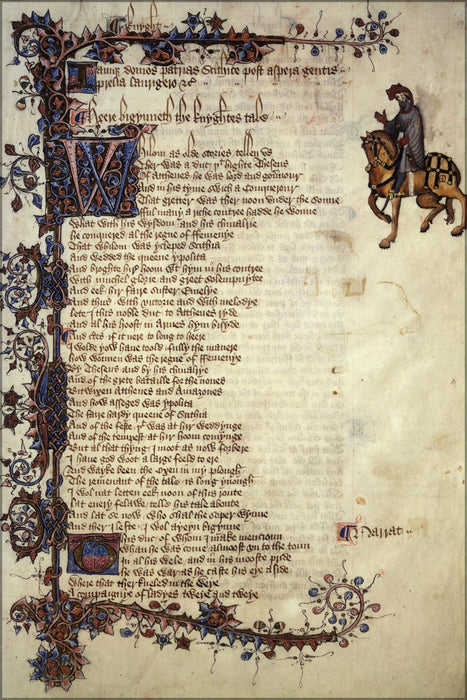 Knyght
Iamque domos patrias Sithice post aspera gentis
Prelia laurigero &c
Heere bigynneth the knyghtes tale
Whilom as olde stories tellen us
Ther was a duc þt highte Theseus
Of Atthenes he was lord and gouernour
And in his tyme swich a Conquerour
That gretter was ther noon under the sonne
fful many a riche contree hadde he wonne
What with his wysdom and his chiualrie
he conquered al the regne of ffemenye
That whilom was ycleped Scithia
And wedded the queene ypolita
And broghte hir hoom wt hym in his contree
With muchel glorie and greet solempnytee
And eek hir faire suster Emelye
And thus with victorie and with melodye
Lete I this noble duc to Atthenes ryde
And al his hoost in Armes hym bisyde
And certes if it nere to long to heere
I wolde yow haue toold fully the manere
how wonnen was the regne of ffemenye
By Theseus and by his chiualrye
And of the grete bataille for the nones
Bitwixen Atthenes and Amazones
And how asseged was ypolita
The faire hardy queene of Scithia
And of the feste þt was at hir weddynge
And of the tempest at hir hoom comynge
But al that thyng I moot as now forbere
I haue god woot a large feeld to ere
And wayke been the Oxen in my plough
The remenant of the tale is long ynough
I wol nat letten eek noon of this route
Lat euery felawe telle his tale aboute
And lat se now who shal the soper wynne
And ther I lefte I wol ayeyn bigynne
This duc of whom I make mencioun
Whan he was come almoost vn to the toun
In al his wele and in his mooste pride
he was war as he caste his eye aside
Where that ther kneled in the weye
A compaignye of ladyes tweye and tweye
Narrat